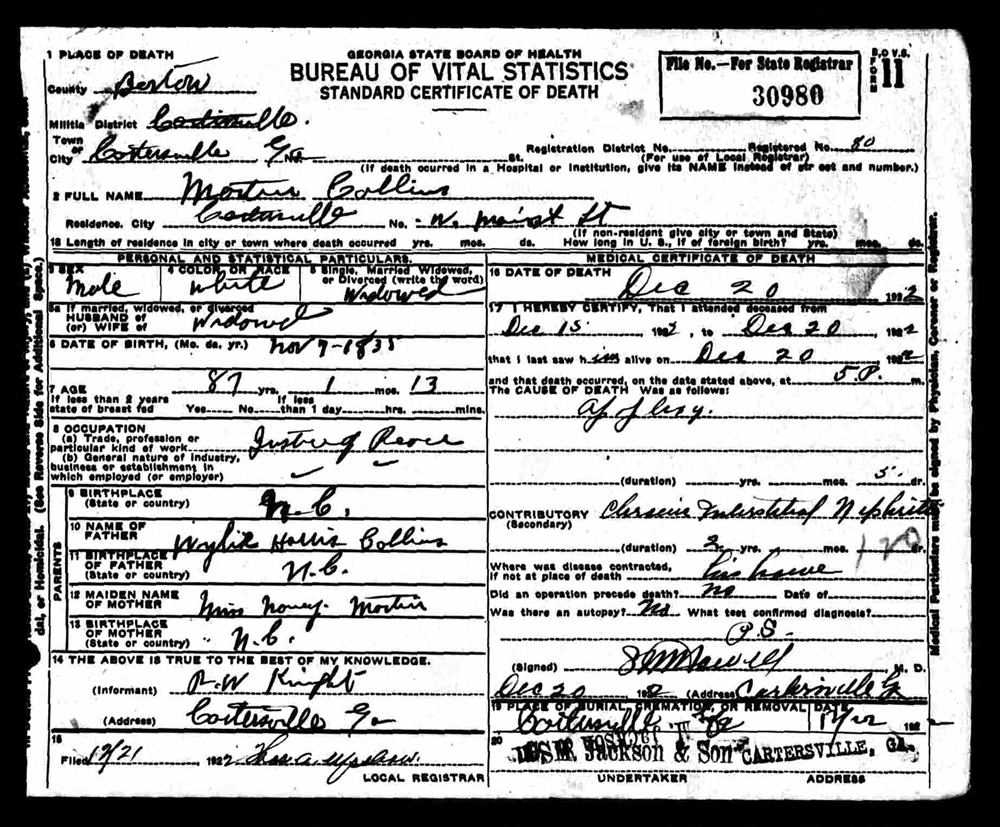 1 PLACE OF DEATH
GEORGIA STATE BOARD OF HEALTH
BUREAU OF VITAL STATISTICS
STANDARD CERTIFICATE OF DEATH
File No.—For State Registrar
30980
B.O.V.S.
FORM 11
County Bartow
Militia District Cartersville.
Town or City Cartersville Ga No. St.
Registration District No. Registered No. 80
(For use of Local Registrar)
(If death occurred in a Hospital or Institution, give its NAME instead of street and number.)
2 FULL NAME Martin Collins
Residence. City Cartersville No. W. main st St
(If non-resident give city or town and State)
18 Length of residence in city or town where death occurred yrs. mos. ds. How long in U. S., if of foreign birth? yrs. mos. ds.
PERSONAL AND STATISTICAL PARTICULARS.
3 SEX
Male
4 COLOR OR RACE
white
5 Single, Married Widowed, or Divorced (write the word)
Widowed
5a If married, widowed, or divorced
HUSBAND OF
(or) WIFE of
Widowed
6 DATE OF BIRTH, (Mo. da. yr.) Nov 7-1835
7 AGE 87 yrs. 1 mos. 13
If less than 2 years If less
state of breast fed Yes No than 1 day hrs. mins.
8 OCCUPATION
(a) Trade, profession or
particular kind of work Justice of Peace
(b) General nature of industry,
business or establishment in
which employed (or employer)
PARENTS
9 BIRTHPLACE
(State or country) N.C.
10 NAME OF
FATHER Wylie Harris Collins
11 BIRTHPLACE
OF FATHER
(State or country) N.C.
12 MAIDEN NAME
OF MOTHER Miss Nancy Martin
13 BIRTHPLACE
OF MOTHER
(State or country) N.C.
14 THE ABOVE IS TRUE TO THE BEST OF MY KNOWLEDGE.
(Informant) R.W Knight
(Address) Cartersville Ga
15
Filed 12/21, 1922
LOCAL REGISTRAR
MEDICAL CERTIFICATE OF DEATH
16 DATE OF DEATH
Dec 20 1922
17 I HEREBY CERTIFY, That I attended deceased from
Dec 15 1922, to Dec 20 1922
that I last saw him alive on Dec 20 1922
and that death occurred, on the date stated above, at 5 P. m.
The CAUSE OF DEATH Was as follows:
Apoplexy.
(duration) yrs. mos. 5 ds.
CONTRIBUTORY Chronic Interstitial Nephritis
(Secondary)
(duration) 2 yrs. mos. ds.
120
Where was disease contracted,
if not at place of death
Did an operation precede death? no Date of
Was there an autopsy? No What test confirmed diagnosis?
P.S.
(Signed) M. D.
Dec 20 1922 (Address) Cartersville Ga
19 PLACE OF BURIAL, CREMATION, OR REMOVAL DATE
Cartersville, Ga 192
20
Jackson & Son CARTERSVILLE, GA.
UNDERTAKER ADDRESS
dal, or Homicidal. (See Reverse Side for Additional Space.)
Medical Particulars must be signed by Physician, Coroner or Registrar.